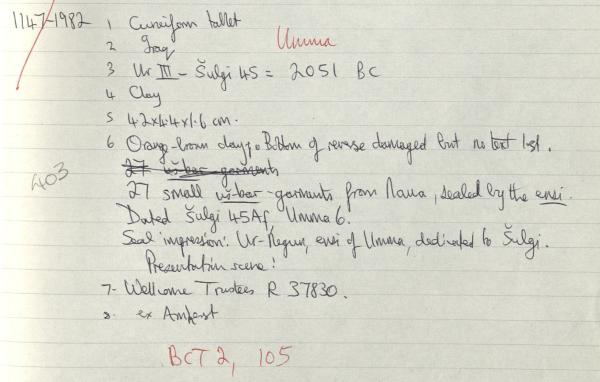 1147-1982 1 Cuneiform tablet
2 Iraq Umma
3 Ur III - Šulgi 45 = 2051 BC
4 Clay
5 4.2x4.4x1.6 cm.
6 Orangy-brown clay. Bottom of reverse damaged but no text lost.
27 uš-bar garments
403
27 small uš-bar-garments from Naua, sealed by the ensi.
Dated Šulgi 45Af, Umma 6.
Seal impression: Ur-Negun, ensi of Umma, dedicated to Šulgi.
Presentation scene!
7- Wellcome Trustees R 37830.
8. ex Amherst
BCT 2, 105